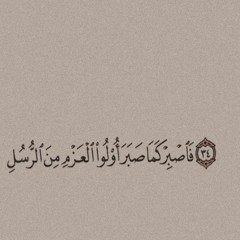 ﴿٣٤﴾ فَٱصْبِرْ كَمَا صَبَرَ أُو۟لُوا۟ ٱلْعَزْمِ مِنَ ٱلرُّسُلِ